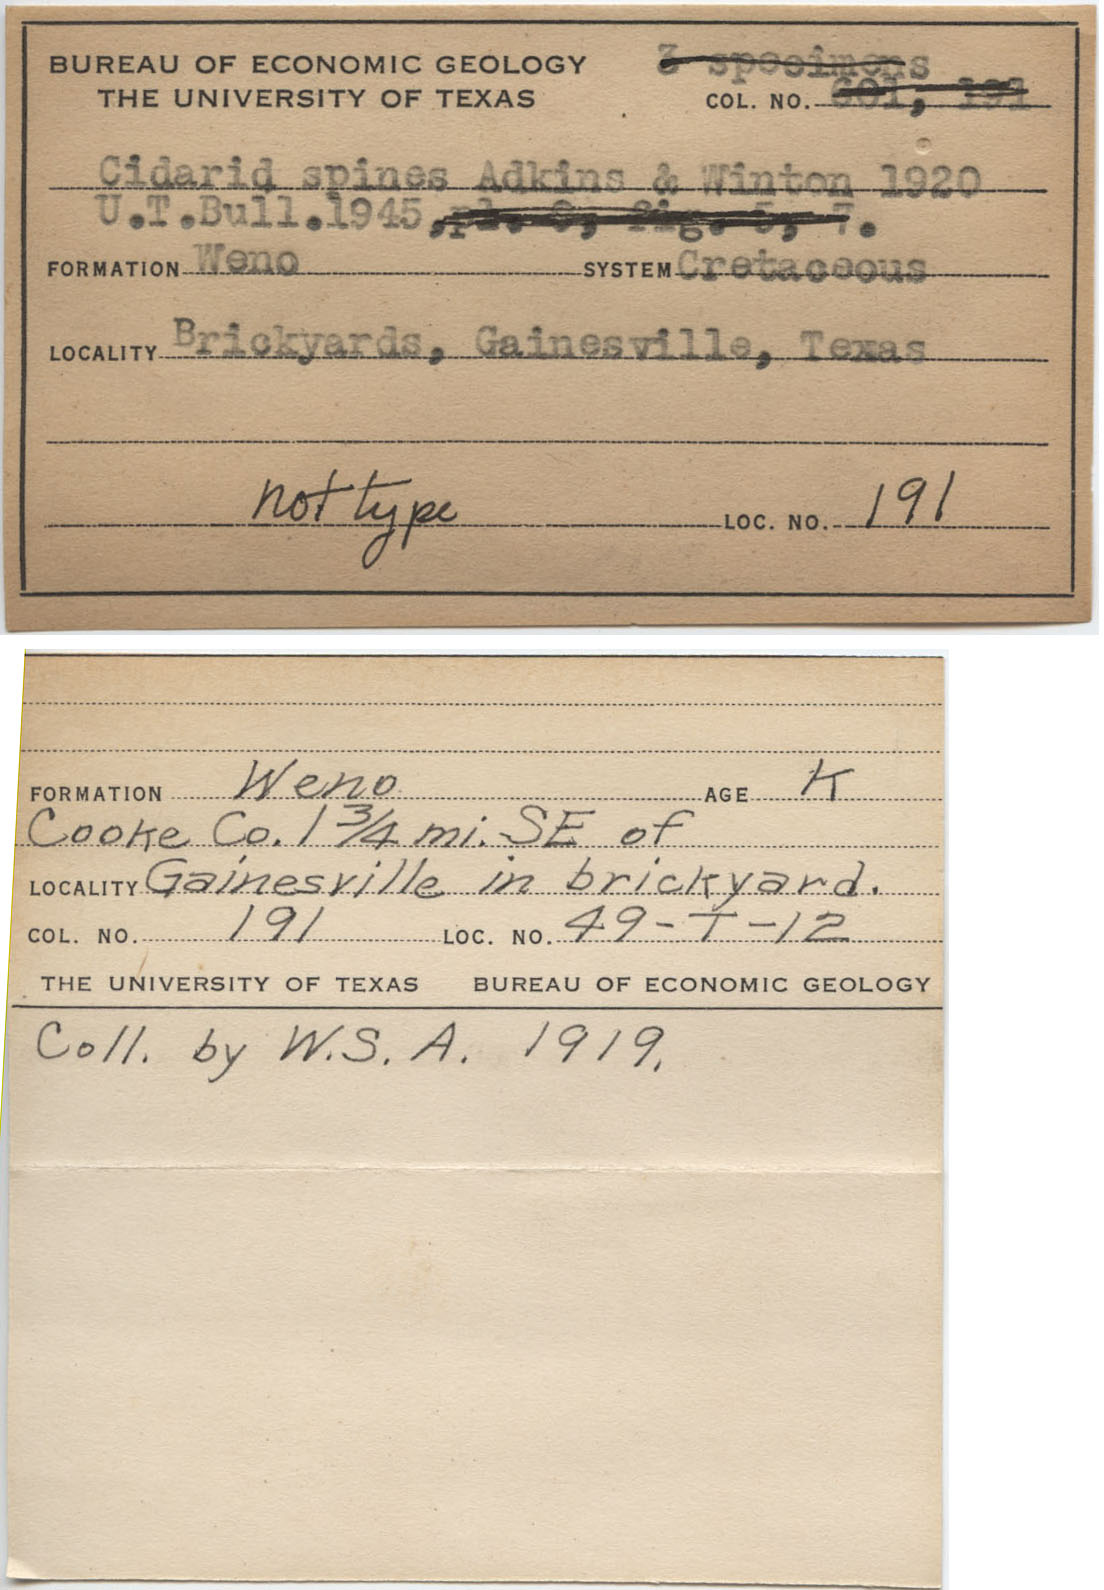 BUREAU OF ECONOMIC GEOLOGY 3 specimens
THE UNIVERSITY OF TEXAS COL. NO. 601, 191
Cidarid spines Adkins & Winton 1920
U.T.Bull.1945, pl. 9, fig. 5, 7.
FORMATION Weno SYSTEM Cretaceous
LOCALITY Brickyards, Gainesville, Texas
not type LOC. NO. 191
FORMATION Weno AGE K
Cooke Co. 1 3/4 mi. SE of
LOCALITY Gainesville in brickyard.
COL. NO. 191 LOC. NO. 49-T-12
THE UNIVERSITY OF TEXAS BUREAU OF ECONOMIC GEOLOGY
Coll. by W.S.A. 1919.